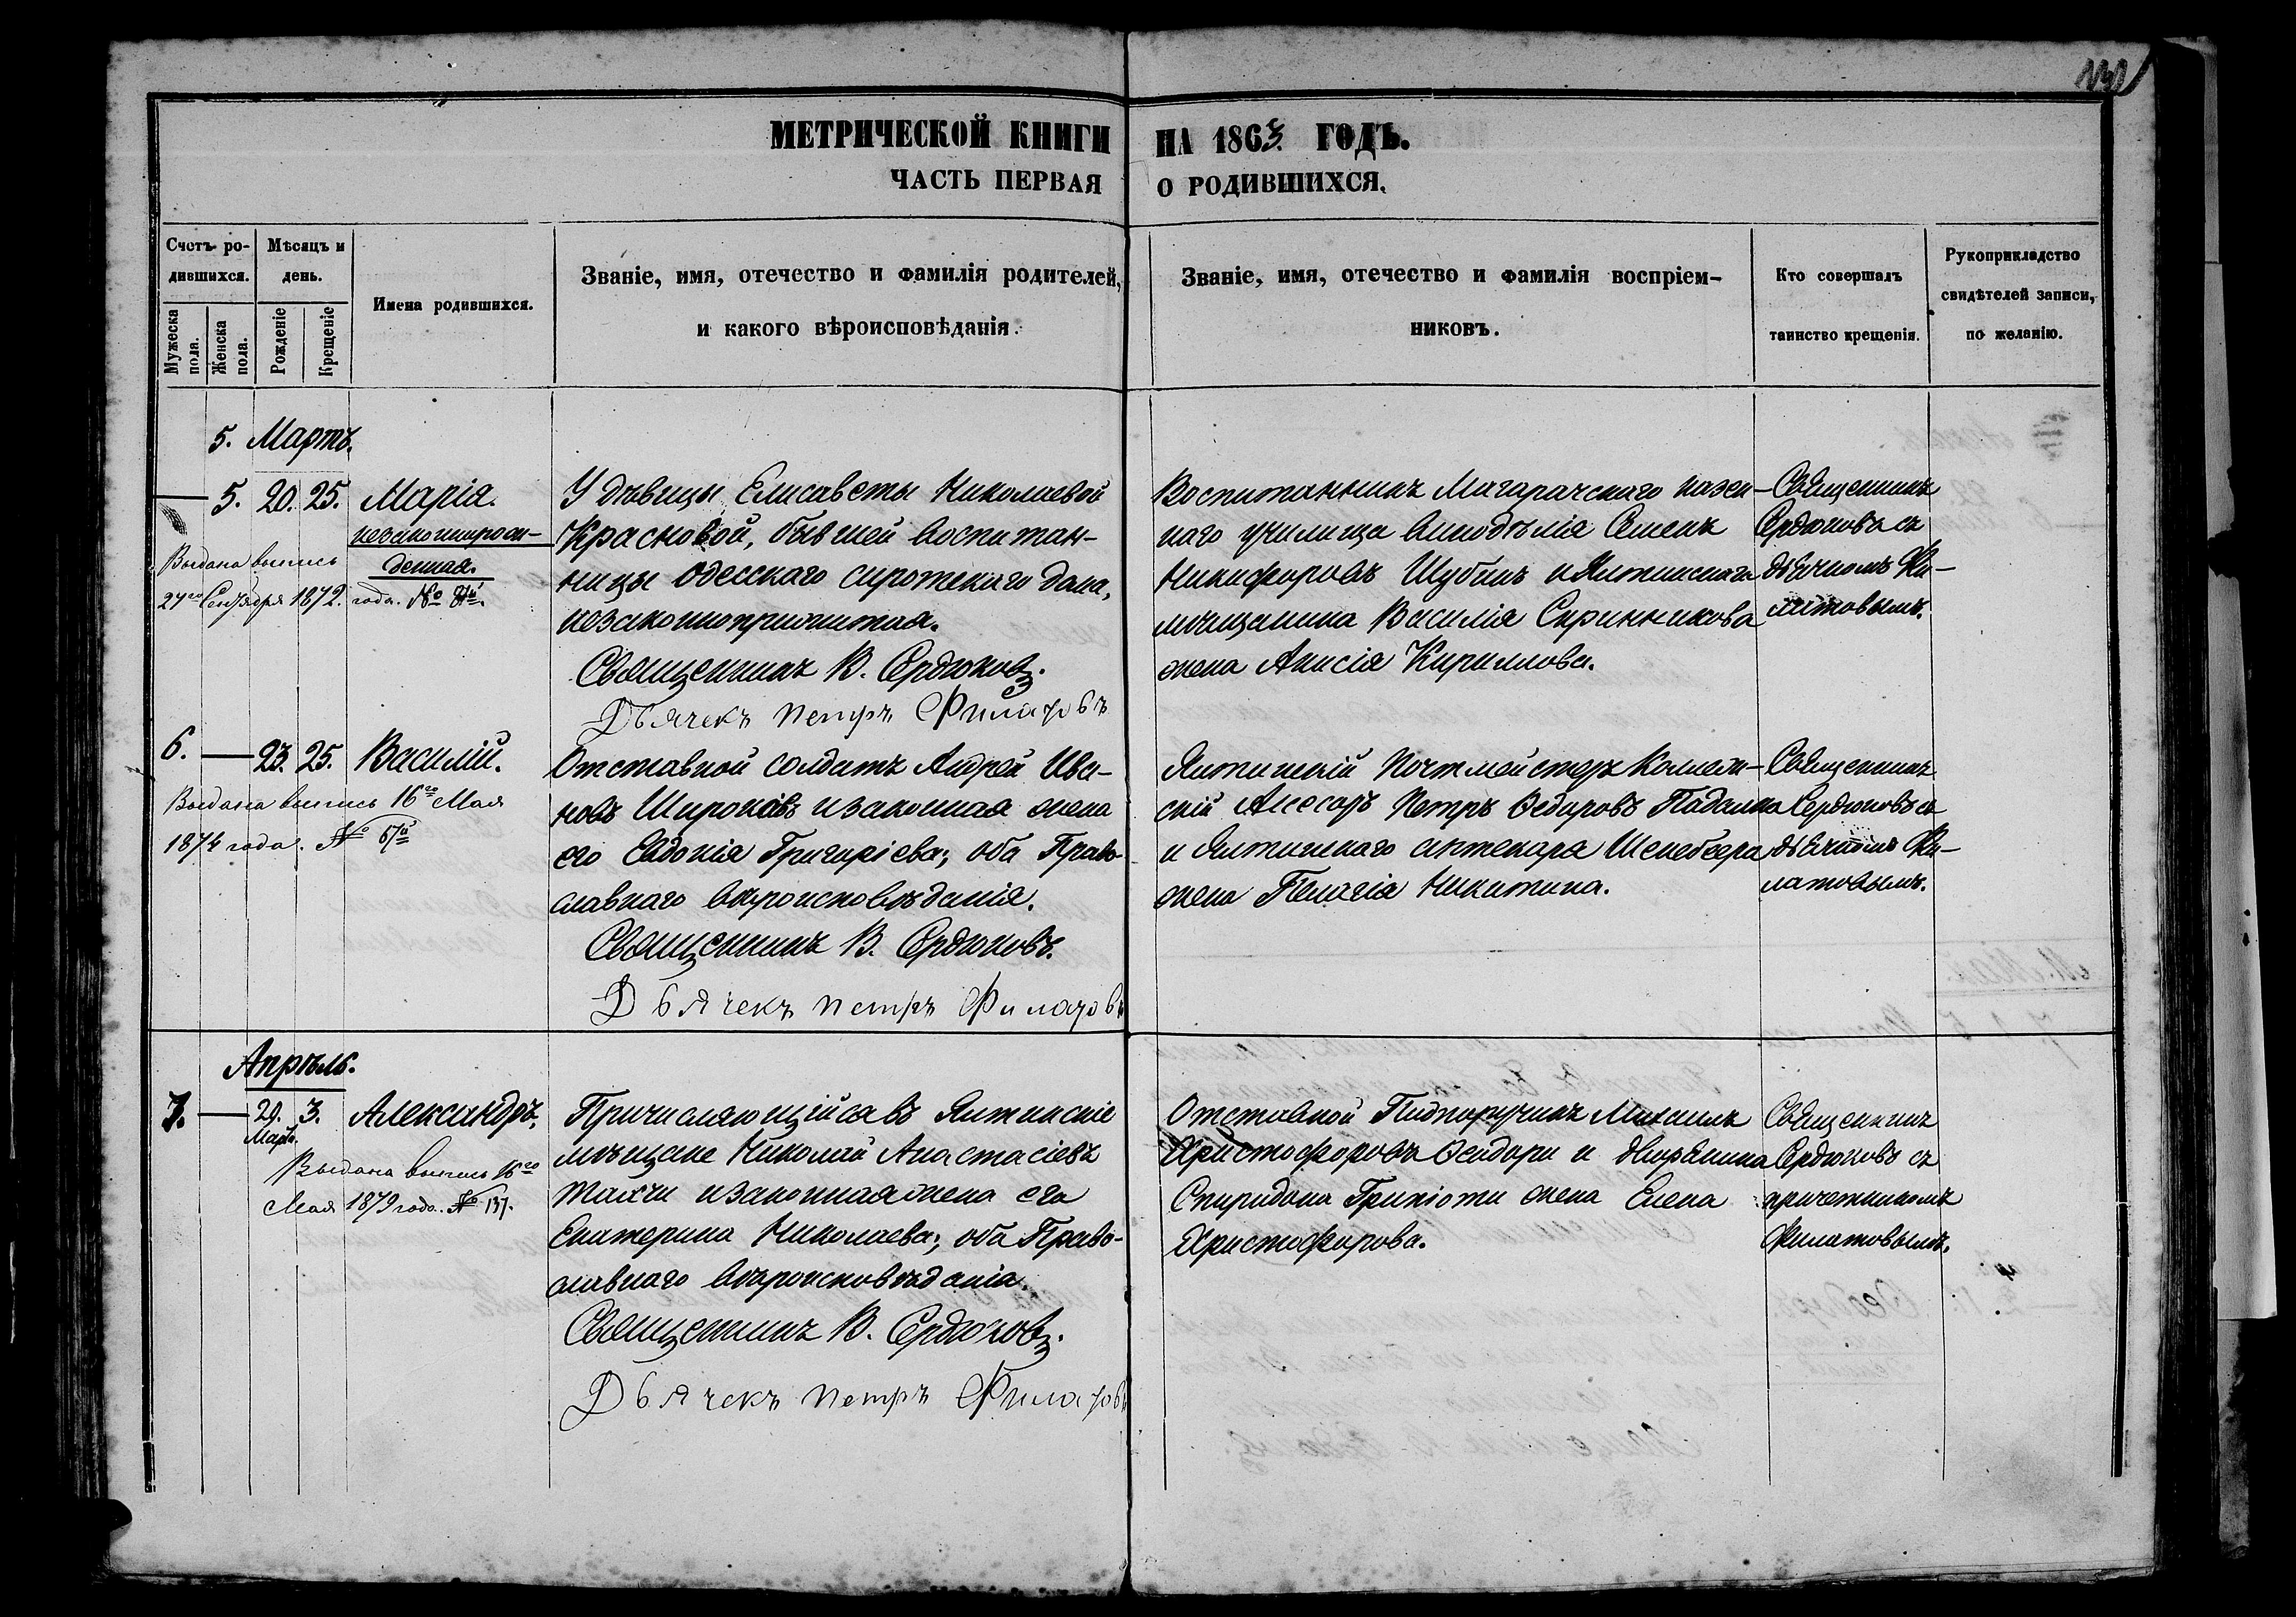 МЕТРИЧЕСКОЙ КНИГИ НА 1863 ГОДЪ.
ЧАСТЬ ПЕРВАЯ О РОДИВШИХСЯ.
Счетъ ро-
дившихся.
Мужеска пола.
Женска пола.
Мѣсяцъ и
день.
Рожденіе
Крещеніе
Имена родившихся.
Званіе, имя, отечество и фамилія родителей,
и какого вѣроисповѣданія.
Званіе, имя, отечество и фамилія воспріем-
никовъ.
Кто совершалъ
таинство крещенія.
Рукоприкладство
свидѣтелей записи,
по желанію.
5. Мартъ.
5. 20. 25. Марія.
незаконнорож-
денная.
Выдана выпись
27го Сентября 1872 года. №
У дѣвицы Елисаветы Николаевой
Красновой, бывшей воспитан-
ницы Одесскаго сиротскаго дома,
незаконноприжитая.
Священникъ В. Сердюковъ.
Дьячекъ Петръ Филатовъ
Воспитанникъ Магарачскаго казен-
наго училища винодѣлія Семенъ
Никифоровъ Шубинъ и Ялтинскаго
мѣщанина Василія Скринникова
жена Анисія Кириллова.
Священникъ
Сердюковъ съ
дьячкомъ Фи-
латовымъ.
6. 23. 25. Василій.
Выдана выпись 16го Мая
1874 года. № 67й
Отставной солдатъ Андрей Ива-
новъ Широковъ и законная жена
его Евдокія Григоріева; оба Право-
славнаго вѣроисповѣданія.
Священникъ В. Сердюковъ.
Дьячекъ Петръ Филатовъ
Ялтинскій Почтмейстеръ Коллеж-
скій Асесоръ Петръ Ѳедоровъ Падалка
и Ялтинскаго аптекара
жена Пелагія Никитина.
Священникъ
Сердюковъ съ
дьячкомъ Фи-
латовымъ.
Апрѣль.
7. 29. 3. Александръ.
Марта.
Выдана выпись 16го
Мая 1879 года. № 137.
Причисляющійся въ Ялтинскіе
мѣщане Николай Анастасіевъ
Тахчи и законная жена его
Екатерина Николаева; оба Право-
славнаго вѣроисповѣданія.
Священникъ В. Сердюковъ.
Дьячекъ Петръ Филатовъ
Отставной Подпоручикъ Михаилъ
Христофоровъ Ѳеидори и дворянина
Спиридона жена Елена
Христофорова.
Священникъ
Сердюковъ съ
причетникомъ
Филатовымъ.